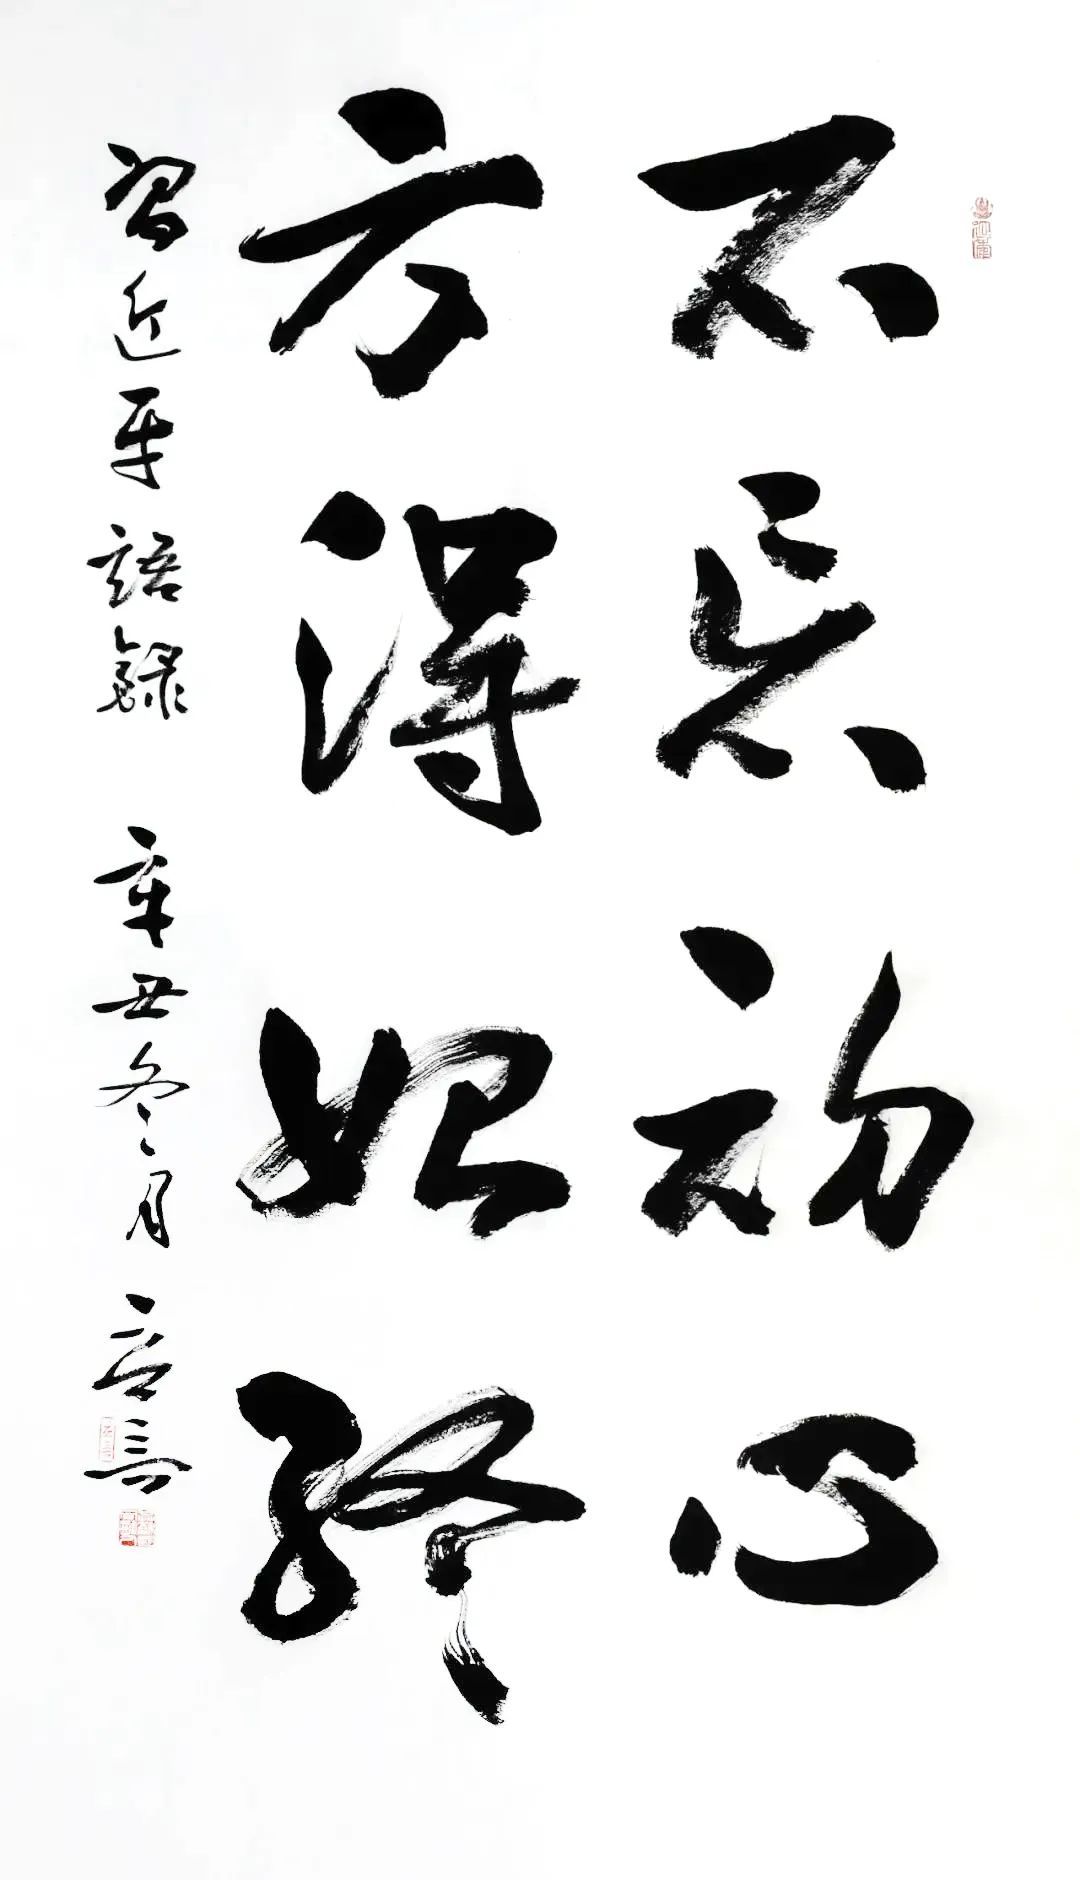 不忘初心
方得始终
習近平語録 辛丑冬月